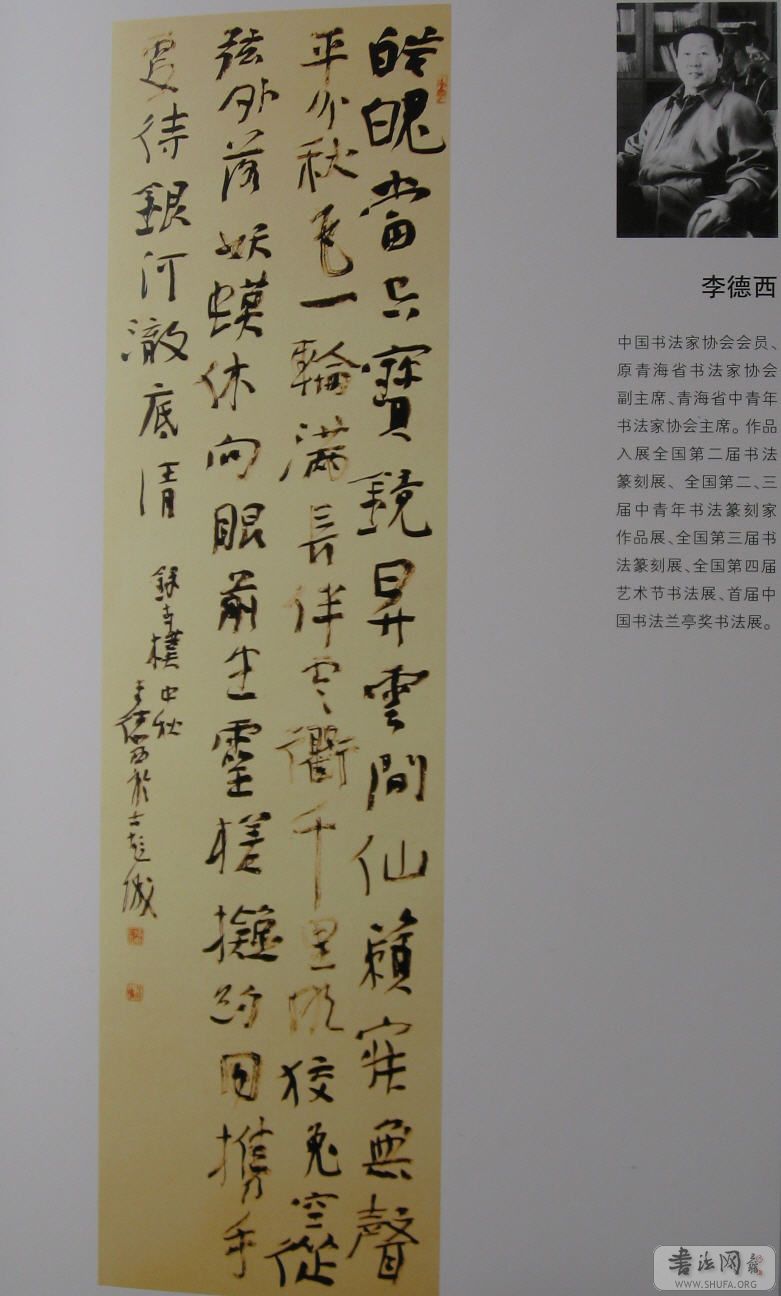 皓魄當空寶鏡昇雲間仙籟寂無聲
平分秋色一輪滿長伴雲衢千里明狡兔空從
弦外落妖蟆休向眼前生靈槎擬約同携手
更待銀河澈底清
錄李樸中秋
李德西於古
李德西
中国书法家协会会员、
原青海省书法家协会
副主席、青海省中青年
书法家协会主席。作品
入展全国第二届书法
篆刻展、全国第二、三
届中青年书法篆刻家
作品展、全国第三届书
法篆刻展、全国第四届
艺术节书法展、首届中
国书法兰亭奖书法展。
书法网
WWW.SHUFA.ORG